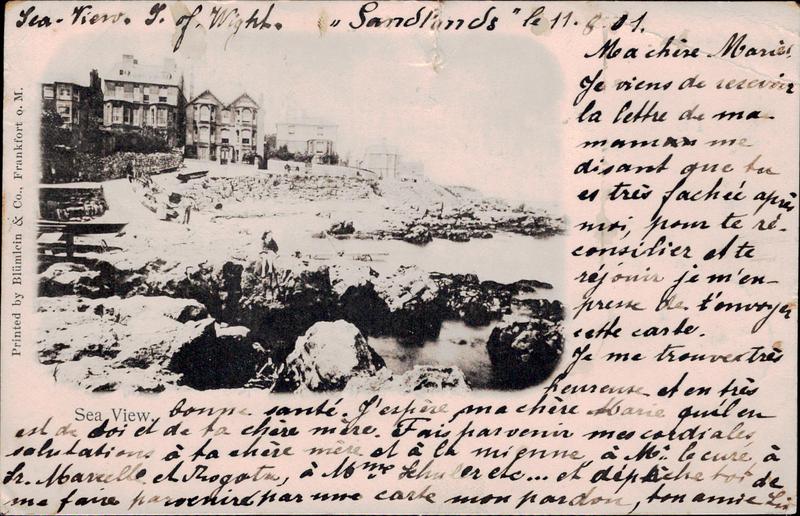 Sea-View. I. of Wight. "Sandlands" le 11. 8. 01.
Ma chère Marie,
Je viens de recevoir
la lettre de ma
maman me
disant que tu
es très fachée après
moi, pour te ré-
consilier et te
réjouir je m'en-
presse de t'envoyer
cette carte.
Je me trouve très
heureuse et en très
bonne santé. J'espère ma chère Marie qu'il en
est de toi et de ta chère mère. Fais parvenir mes cordiales
salutations à ta chère mère et à la mienne à Mr. le curé, à
Sr. Marcelle et Rogata, à Mme Schuler etc... et dépêche toi de
me faire parvenir par une carte mon pardon, ton amie
Sea View.
Printed by Blümlein & Co., Frankfort o. M.